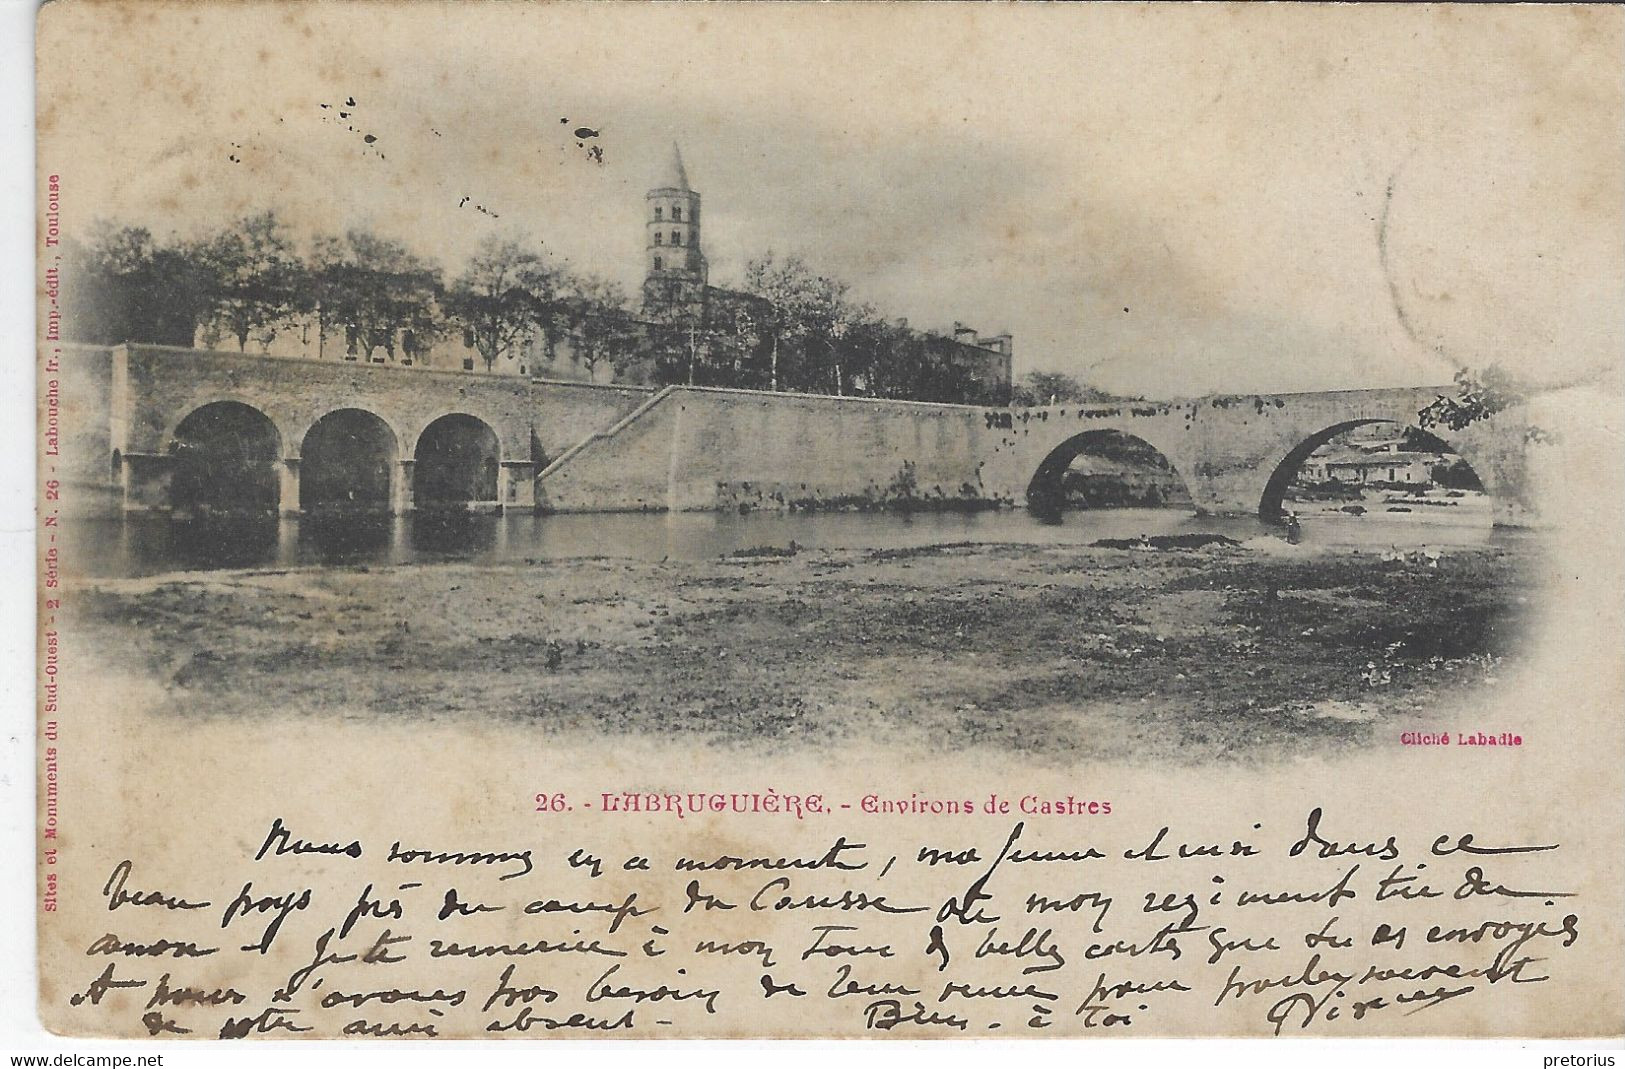 Sites et Monuments du Sud-Ouest - 2 Série - N. 26 - Labouche fr., Imp.-édit., Toulouse
Cliché Labadie
26. - LABRUGUIÈRE. - Environs de Castres
Nous sommes en ce moment, ma femme et moi dans ce
beau pays près du camp du Causse où mon régiment tire du
canon - Je te remercie à mon tour des belles cartes que tu as envoyées
et nous n'avons pas besoin de leur venue pour parler souvent
de notre ami absent - Bien - à toi
delcampe.net
pretorius